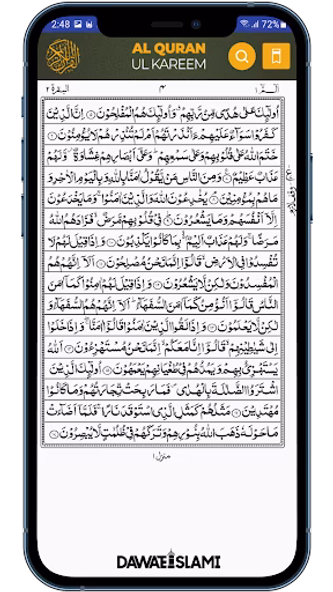 2:48
72%
AL QURAN
UL KAREEM
البقرة ٢
٣
الٓمّٓ ١
اُولٰٓىِٕكَ عَلٰى هُدًى مِّنْ رَّبِّهِمْ ۗ وَاُولٰٓىِٕكَ هُمُ الْمُفْلِحُوْنَ ۝ اِنَّ الَّذِيْنَ
كَفَرُوْا سَوَآءٌ عَلَيْهِمْ ءَاَنْذَرْتَهُمْ اَمْ لَمْ تُنْذِرْهُمْ لَا يُؤْمِنُوْنَ ۝
خَتَمَ اللّٰهُ عَلٰى قُلُوْبِهِمْ وَعَلٰى سَمْعِهِمْ ؕ وَعَلٰٓى اَبْصَارِهِمْ غِشَاوَةٌ ؗ وَّلَهُمْ
عَذَابٌ عَظِيْمٌ ۝ وَمِنَ النَّاسِ مَنْ يَّقُوْلُ اٰمَنَّا بِاللّٰهِ وَبِالْيَوْمِ الْاٰخِرِ وَمَا
هُمْ بِمُؤْمِنِيْنَ ۝ يُخٰدِعُوْنَ اللّٰهَ وَالَّذِيْنَ اٰمَنُوْا ۚ وَمَا يَخْدَعُوْنَ
اِلَّاۤ اَنْفُسَهُمْ وَمَا يَشْعُرُوْنَ ۝ فِيْ قُلُوْبِهِمْ مَّرَضٌ ۙ فَزَادَهُمُ اللّٰهُ
مَرَضًا ۚ وَلَهُمْ عَذَابٌ اَلِيْمٌۢ ۙ بِمَا كَانُوْا يَكْذِبُوْنَ ۝ وَاِذَا قِيْلَ لَهُمْ لَا
تُفْسِدُوْا فِي الْاَرْضِ ۙ قَالُوْٓا اِنَّمَا نَحْنُ مُصْلِحُوْنَ ۝ اَلَاۤ اِنَّهُمْ هُمُ
الْمُفْسِدُوْنَ وَلٰكِنْ لَّا يَشْعُرُوْنَ ۝ وَاِذَا قِيْلَ لَهُمْ اٰمِنُوْا كَمَاۤ اٰمَنَ
النَّاسُ قَالُوْٓا اَنُؤْمِنُ كَمَاۤ اٰمَنَ السُّفَهَآءُ ؕ اَلَاۤ اِنَّهُمْ هُمُ السُّفَهَآءُ وَ
لٰكِنْ لَّا يَعْلَمُوْنَ ۝ وَاِذَا لَقُوا الَّذِيْنَ اٰمَنُوْا قَالُوْٓا اٰمَنَّا ۚ وَاِذَا خَلَوْا
اِلٰى شَيٰطِيْنِهِمْ ۙ قَالُوْٓا اِنَّا مَعَكُمْ ۙ اِنَّمَا نَحْنُ مُسْتَهْزِءُوْنَ ۝ اَللّٰهُ
يَسْتَهْزِئُ بِهِمْ وَيَمُدُّهُمْ فِيْ طُغْيَانِهِمْ يَعْمَهُوْنَ ۝ اُولٰٓىِٕكَ الَّذِيْنَ
اشْتَرَوُا الضَّلٰلَةَ بِالْهُدٰى ۪ فَمَا رَبِحَتْ تِّجَارَتُهُمْ وَمَا كَانُوْا
مُهْتَدِيْنَ ۝ مَثَلُهُمْ كَمَثَلِ الَّذِي اسْتَوْقَدَ نَارًا ۚ فَلَمَّاۤ اَضَآءَتْ
مَا حَوْلَهٗ ذَهَبَ اللّٰهُ بِنُوْرِهِمْ وَتَرَكَهُمْ فِيْ ظُلُمٰتٍ لَّا يُبْصِرُوْنَ ۝
منزل ١
DAWATEISLAMI